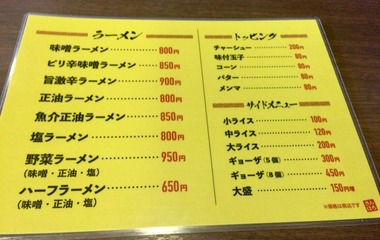 ラーメン
味噌ラーメン 800円
ピリ辛味噌ラーメン 850円
旨激辛ラーメン 900円
正油ラーメン 800円
魚介正油ラーメン 850円
塩ラーメン 800円
野菜ラーメン 950円
(味噌・正油・塩)
ハーフラーメン 650円
(味噌・正油・塩)
トッピング
チャーシュー 200円
味付玉子 80円
コーン 80円
バター 80円
メンマ 80円
サイドメニュー
小ライス 100円
中ライス 120円
大ライス 200円
ギョーザ(5個) 300円
ギョーザ(8個) 450円
大盛 150円増
※価格は税込です